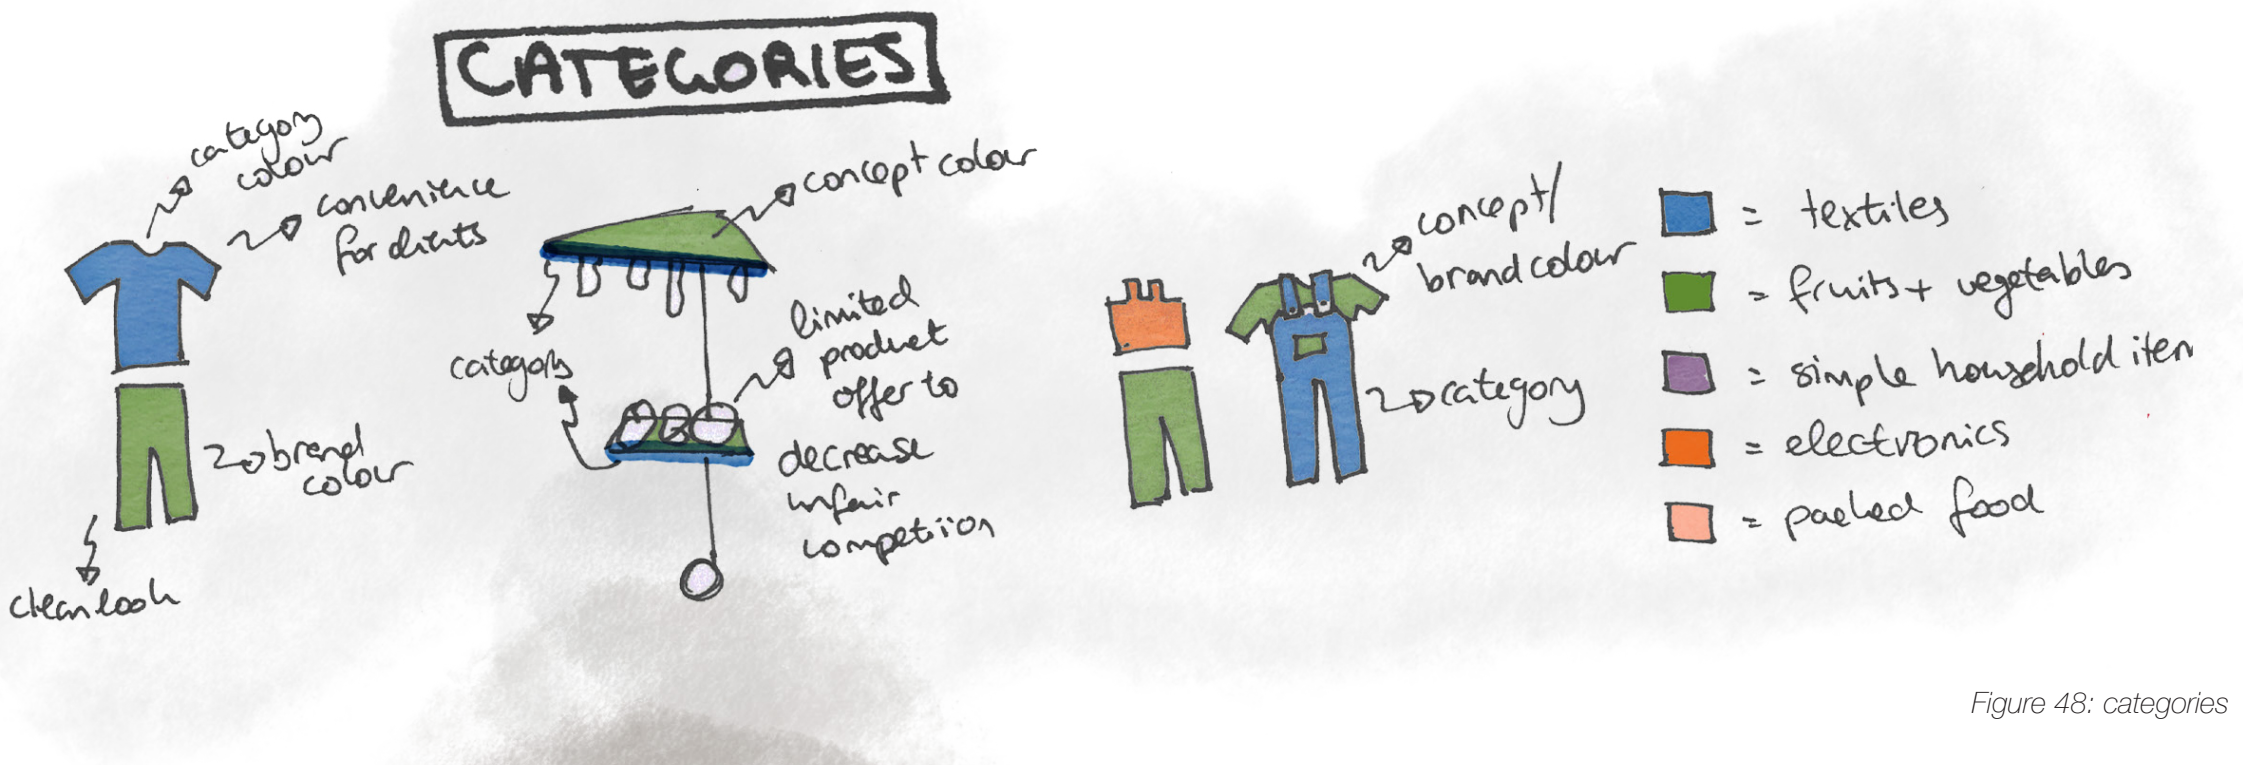 CATEGORIES
category
colour
convenience
for clients
brand
colour
clean look
concept colour
category
limited
product
offer to
decrease
unfair
competition
concept/
brand colour
category
= textiles
= fruits + vegetables
= simple household item
= electronics
= packed food
Figure 48: categories